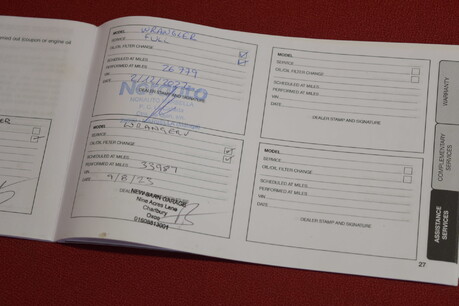 MODEL WRANGLER
SERVICE FULL
OIL/OIL FILTER CHANGE
SCHEDULED AT MILES
PERFORMED AT MILES 26779
VIN
DATE
DEALER STAMP AND SIGNATURE
MODEL WRANGLER
SERVICE
OIL/OIL FILTER CHANGE
SCHEDULED AT MILES
PERFORMED AT MILES 33987
VIN
DATE 9/8/23
NEW BARN GARAGE
Nine Acres Lane
Charlbury
Oxon
MODEL
SERVICE
OIL/OIL FILTER CHANGE
SCHEDULED AT MILES
PERFORMED AT MILES
VIN
DATE
DEALER STAMP AND SIGNATURE
MODEL
SERVICE
OIL/OIL FILTER CHANGE
SCHEDULED AT MILES
PERFORMED AT MILES
VIN
DATE
DEALER STAMP AND SIGNATURE
WARRANTY
COMPLEMENTARY
SERVICES
ASSISTANCE
SERVICES
27